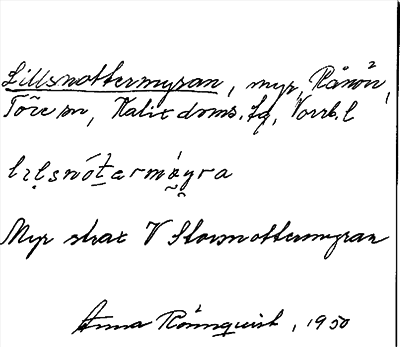 Lillsnottermyran, myr, Rånön,
Töre sn, Kalix doms. tg, Norrb. l
Myr strax V Storsnottermyran
Anna Rönnquist, 1950